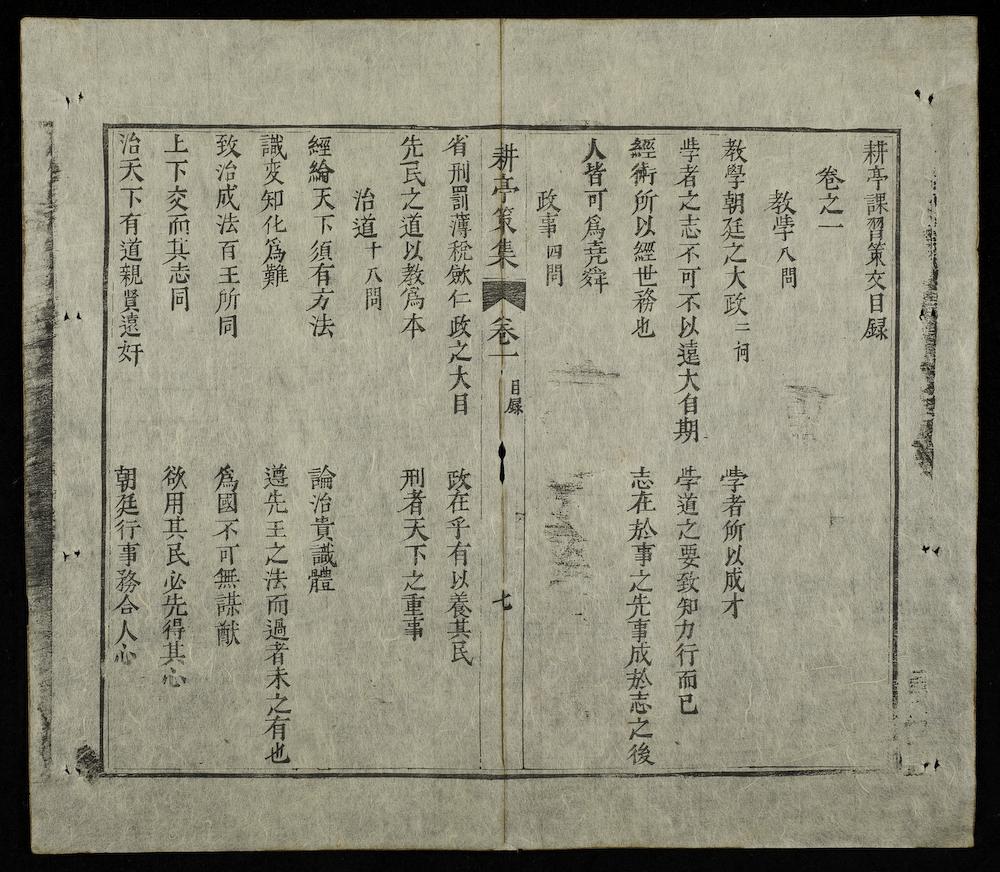 耕亭課習策文目録
卷之一
教學 八問
教學朝廷之大政 二問 學者所以成才
學者之志不可不以遠大自期 學道之要致知力行而已
經術所以經世務也 志在於事之先事成於志之後
人皆可爲堯舜
政事 四問
省刑罰薄稅歛仁政之大目 政在乎有以養其民
先民之道以教爲本 刑者天下之重事
治道 十八問
經綸天下須有方法 論治貴識體
識変知化爲難 遵先王之法而過者未之有也
致治成法百王所同 爲國不可無謀猷
上下交而其志同 欲用其民必先得其心
治天下有道親賢遠奸 朝廷行事務合人心
耕亭策集 卷一 目録 七